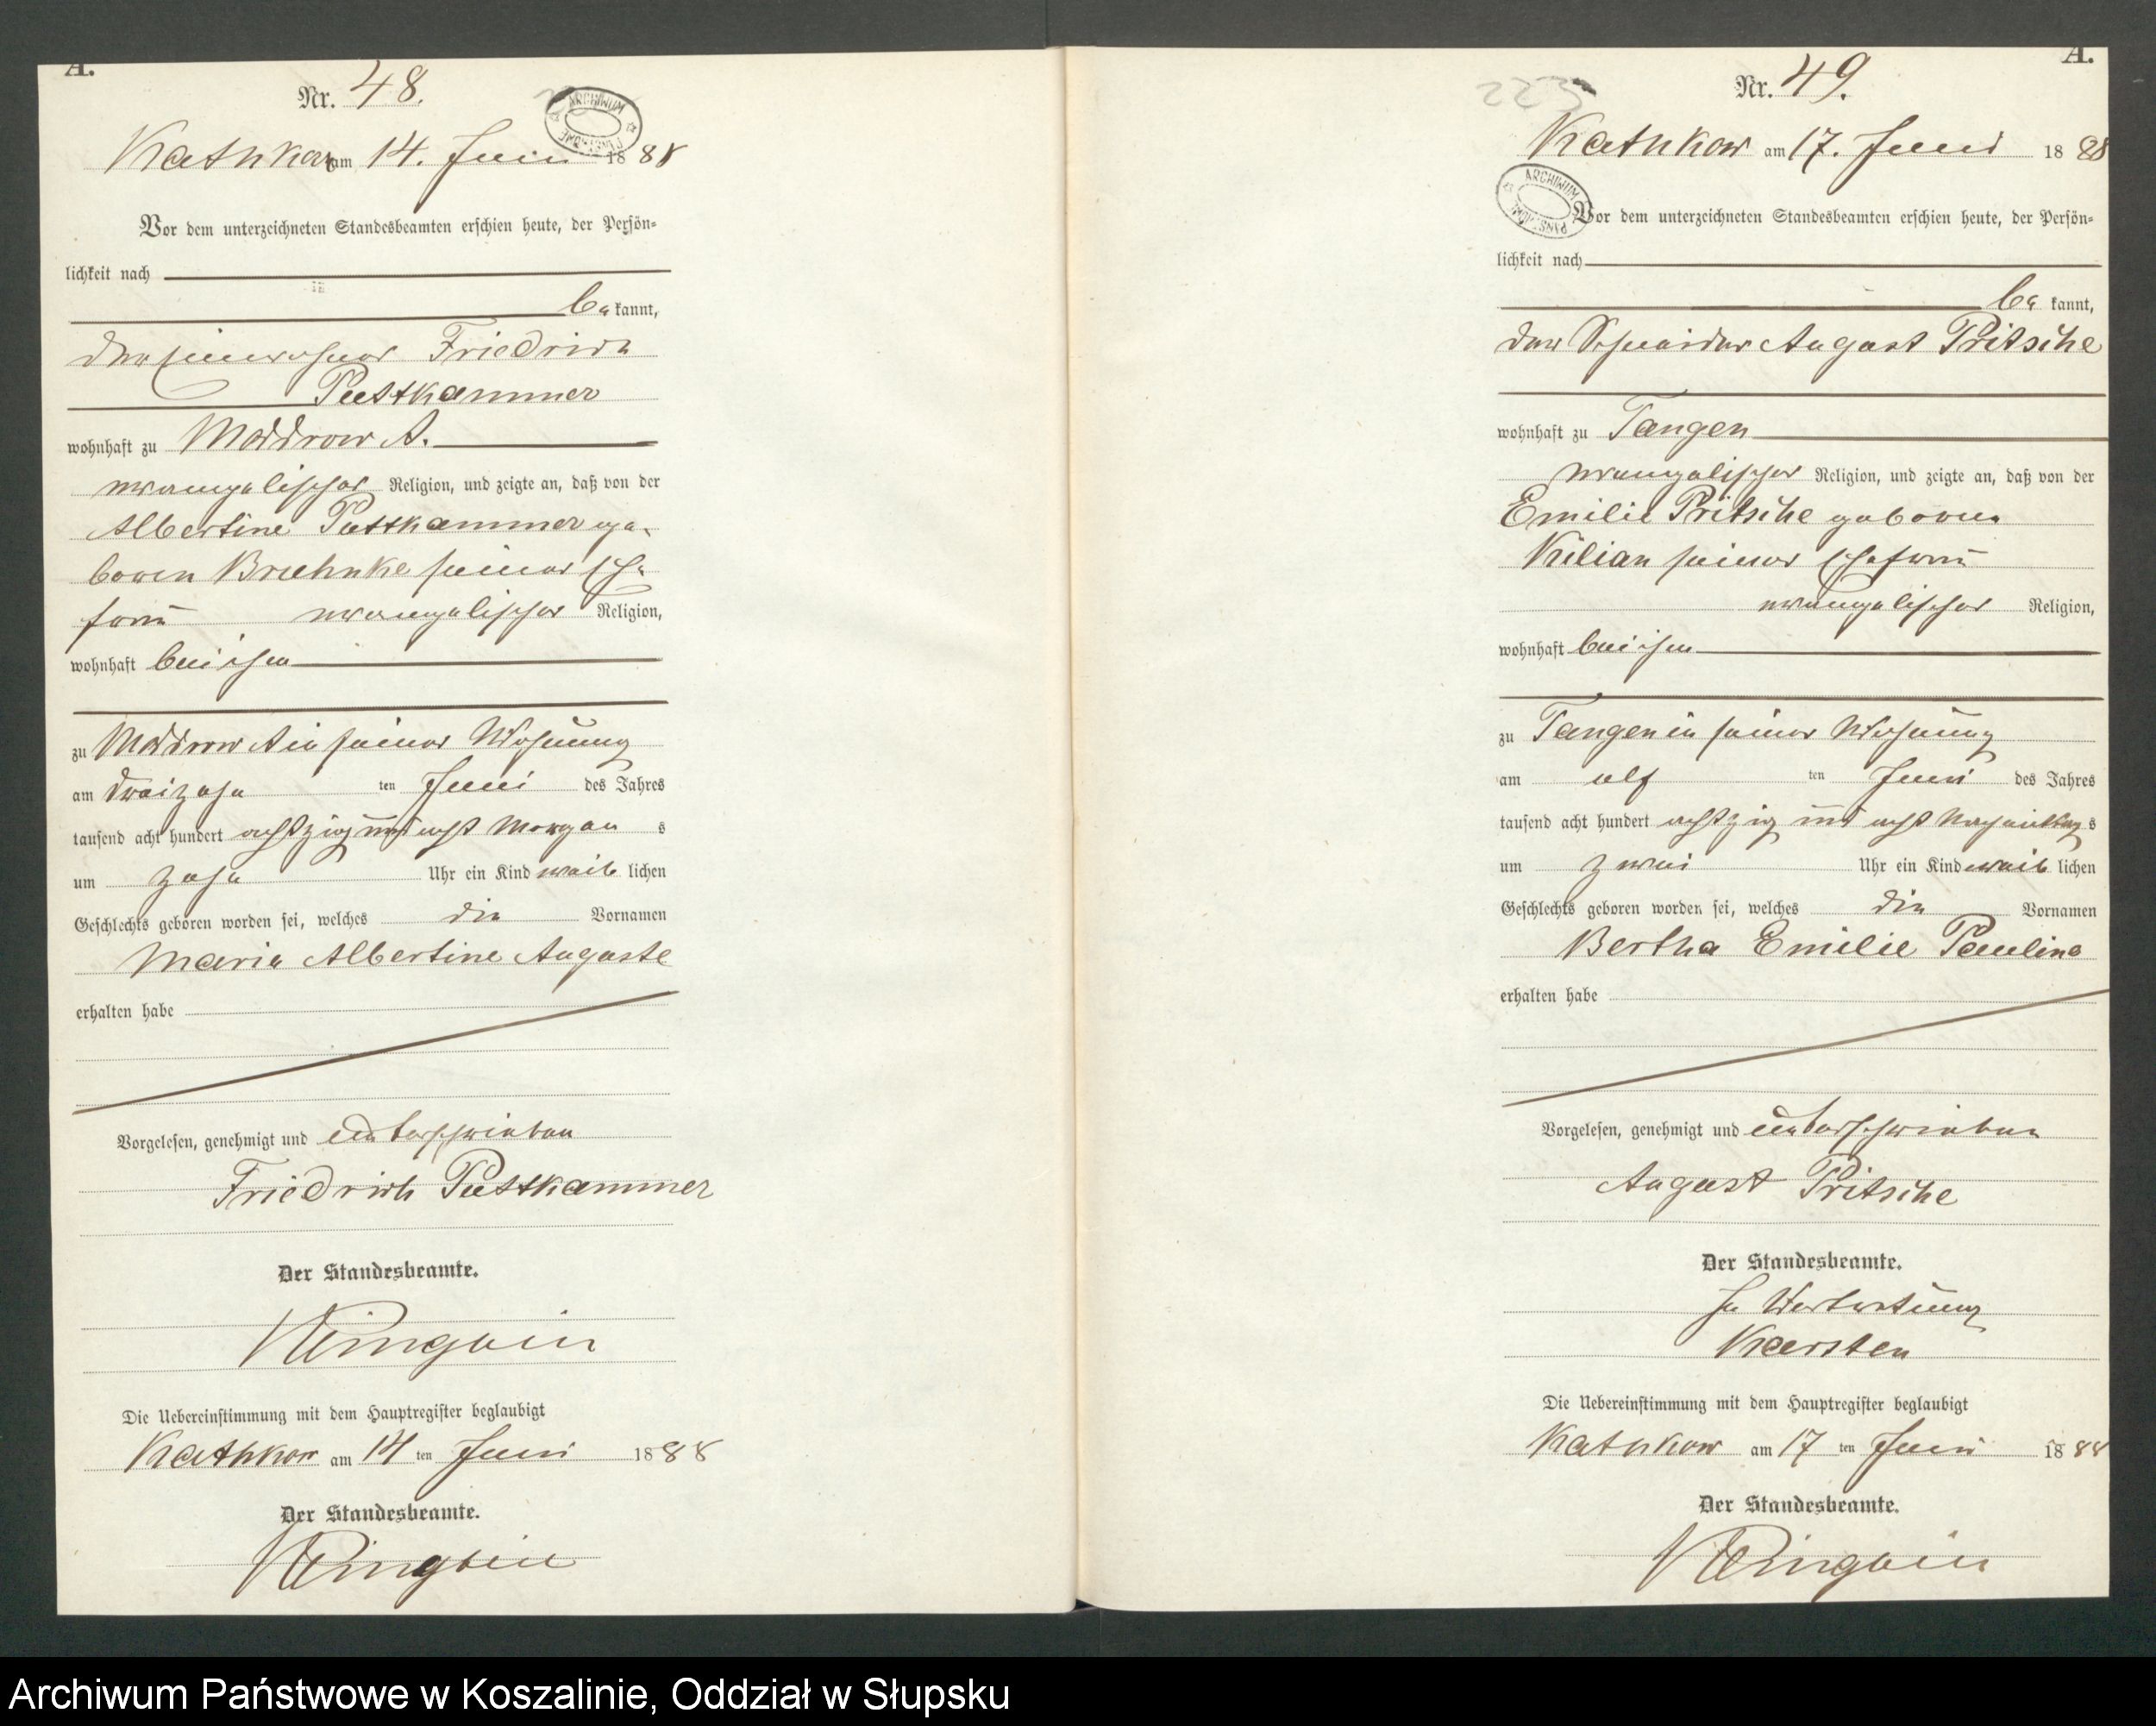 A.
Nr. 48.
ARCHIWUM
Kathkow am 14. Juni 1888
Vor dem unterzeichneten Standesbeamten erschien heute, der Persön-
lichkeit nach
be kannt,
der Einwohner Friedrich
Puttkammer
wohnhaft zu Moddrow A.
evangelischer Religion, und zeigte an, daß von der
Albertine Puttkammer ge-
boren seiner Ehe
frau evangelischer Religion,
wohnhaft bei ihm
zu Moddrow A in seiner Wohnung
am dreizehn ten Juni des Jahres
tausend acht hundert achtzig und acht Morgen s
um zehn Uhr ein Kind weib lichen
Geschlechts geboren worden sei, welches die Vornamen
Maria Albertine Auguste
erhalten habe
Vorgelesen, genehmigt und unterschrieben
Friedrich Puttkammer
Der Standesbeamte.
Die Uebereinstimmung mit dem Hauptregister beglaubigt
Kathkow am 14 ten Juni 1888
Der Standesbeamte.
A.
223
Nr. 49.
Kathkow am 17. Juni 1888
ARCHIWUM
Vor dem unterzeichneten Standesbeamten erschien heute, der Persön-
lichkeit nach
be kannt,
der Schneider August Pritsche
wohnhaft zu Tangen
evangelischer Religion, und zeigte an, daß von der
Emilie Pritsche geborene
Kilian seiner Ehefrau
evangelischer Religion,
wohnhaft bei ihm
zu Tangen in seiner Wohnung
am elf ten Juni des Jahres
tausend acht hundert achtzig und acht Nachmittag s
um zwei Uhr ein Kind weib lichen
Geschlechts geboren worden sei, welches die Vornamen
Bertha Emilie Pauline
erhalten habe
Vorgelesen, genehmigt und unterschrieben
August Pritsche
Der Standesbeamte.
In Vertretung
Karsten
Die Uebereinstimmung mit dem Hauptregister beglaubigt
Kathkow am 17 ten Juni 1888
Der Standesbeamte.
Archiwum Państwowe w Koszalinie, Oddział w Słupsku